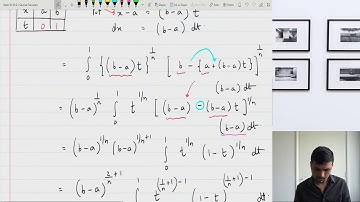 x | a | b let x-a = (b-a) t
t | 0 | 1 dx = (b-a) dt
∫₀¹ {(b-a)t}^{1/n} [b - {a+(b-a)t}]^{1/n} (b-a) dt
= (b-a)^{1/n} ∫₀¹ t^{1/n} [(b-a) - (b-a)t]^{1/n} (b-a) dt
= (b-a)^{1/n} (b-a)^{1/n+1} ∫₀¹ t^{1/n} (1-t)^{1/n} dt
= (b-a)^{2/n+1} ∫₀¹ t^{(1/n+1)-1} (1-t)^{(1/n+1)-1} dt